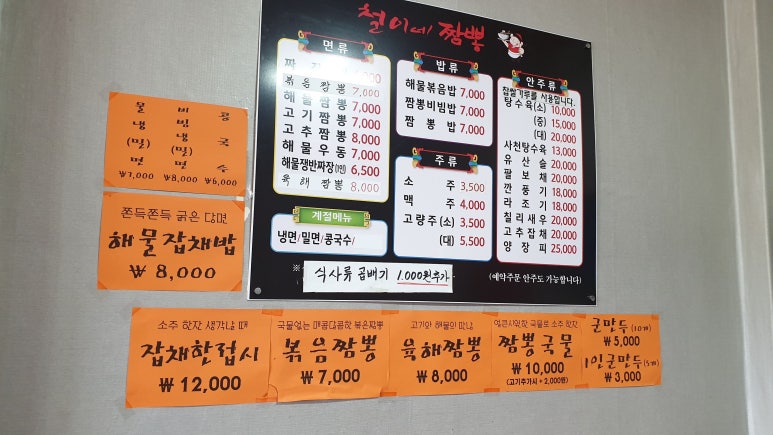 철이네 짬뽕
면류
짜
볶음짬뽕 7,000
해물짬뽕 7,000
고기짬뽕 7,000
고추짬뽕 8,000
해물우동 7,000
해물쟁반짜장(1인) 6,500
육해짬뽕 8,000
계절메뉴
냉면/밀면/콩국수/
밥류
해물볶음밥 7,000
짬뽕비빔밥 7,000
짬뽕밥 7,000
주류
소주 3,500
맥주 4,000
고량주(소) 3,500
(대) 5,500
안주류
찹쌀가루를 사용합니다.
탕수육(소) 10,000
(중) 15,000
(대) 20,000
사천탕수육 13,000
유산슬 20,000
팔보채 20,000
깐풍기 18,000
라조기 18,000
칠리새우 20,000
고추잡채 20,000
양장피 25,000
식사류 곱배기 1.000원추가
(예약주문 안주도 가능합니다)
물냉(밀)면 ₩7,000
비빔냉(밀)면 ₩8,000
콩국수 ₩6,000
쫀득쫀득 굵은 당면
해물잡채밥
₩ 8,000
소주 한잔 생각날 때
잡채한접시
₩ 12,000
국물없는 매콤달콤한 볶은짬뽕
볶음짬뽕
₩ 7,000
고기와 해물의 만남
육해짬뽕
₩ 8,000
얼큰시원한 국물로 소주 한잔
짬뽕국물
₩ 10,000
(고기추가시 + 2,000원)
군만두(10개)
₩ 5,000
1인군만두(5개)
₩ 3,000